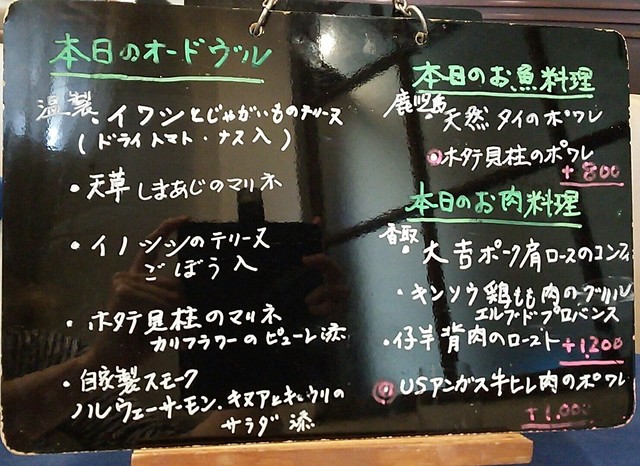 本日のオードヴル
温製・イワシとじゃがいものテリーヌ
(ドライトマト・ナス入)
・天草 しまあじのマリネ
・イノシシのテリーヌ
ごぼう入
・ホタテ貝柱のマリネ
カリフラワーのピューレ添
・自家製スモーク
ノルウェーサーモン、キヌアときゅうりの
サラダ添
本日のお魚料理
鹿児島
・天然 タイのポワレ
ホタテ貝柱のポワレ
+800
本日のお肉料理
香取
・大吉ポーク肩ロースのコンフィ
・キンソウ鶏もも肉のグリル
エルブ・ド・プロバンス
・仔羊背肉のロースト +1,200
USアンガス牛ヒレ肉のポワレ
+1,000